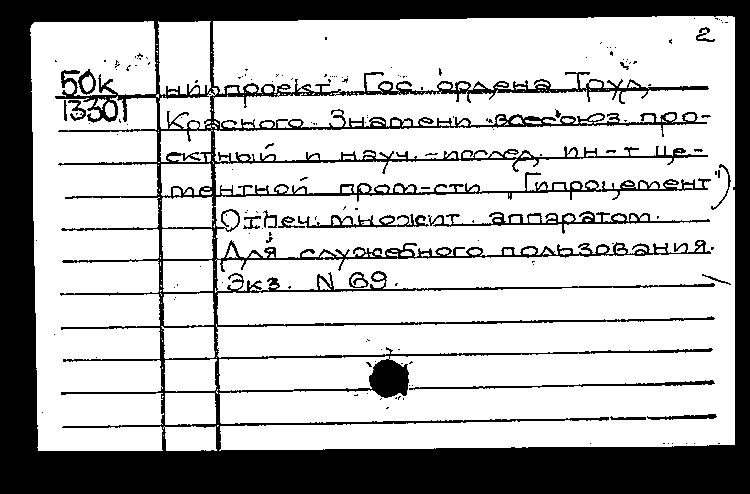 2
50к ниипроект. Гос. ордена Труд.
13301 Красного Знамени всесоюз. про-
ектный и науч.-исслед. ин-т це-
ментной пром-сти "Гипроцемент")
Отпеч. множит. аппаратом.
Для служебного пользования.
Экз. N 69.